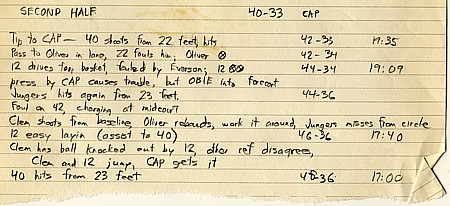 SECOND HALF 40-33 CAP
Tip to CAP — 40 shoots from 22 feet, hits 42-33 19:35
Pass to Oliver in lane, 22 fouls him; Oliver ⊗ 42-34
12 drives for basket, fouled by Everson; 12 ⊗⊗ 44-34 19:09
press by CAP causes trouble, but OBIE into forcourt
Jungers hits again from 23 feet. 44-36
Foul on 42, charging at midcourt
Clem shoots from baseline, Oliver rebounds, work it around, Jungers misses from circle
12 easy layin (assist to 40) 46-36 17:40
Clem has ball knocked out by 12, other ref disagree,
Clem and 12 jump, CAP gets it
40 hits from 23 feet 48-36 17:00